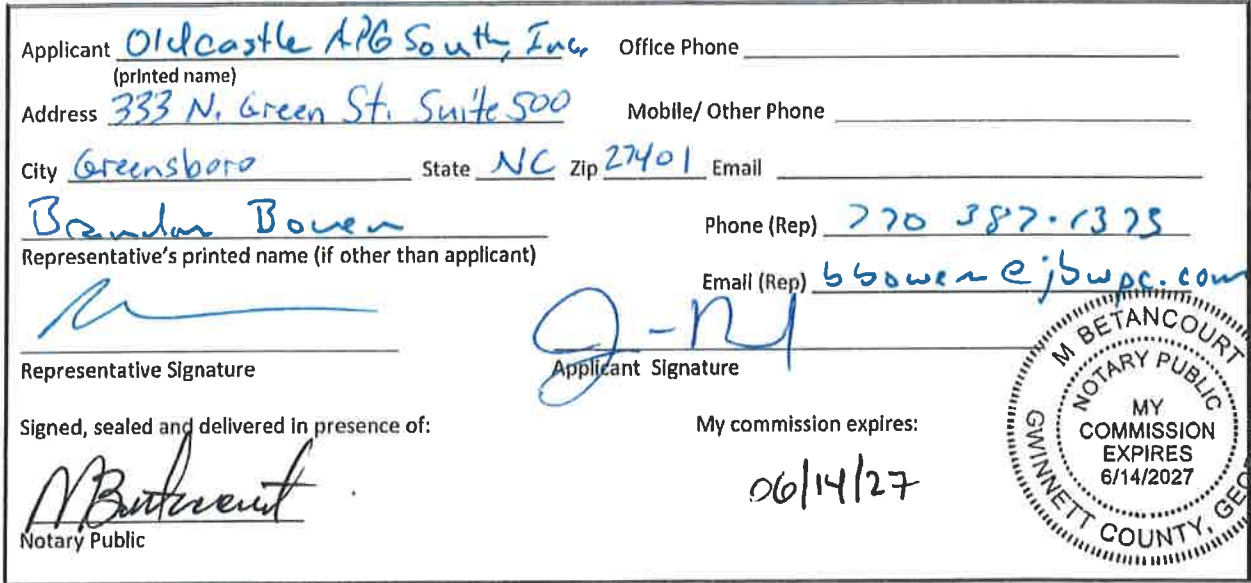 Applicant Oldcastle APG South, Inc. Office Phone
(printed name)
Address 333 N. Green St. Suite 500 Mobile/ Other Phone
City Greensboro State NC Zip 27401 Email
Brandon Bowen Phone (Rep) 770 387-1373
Representative's printed name (if other than applicant)
Email (Rep) bbowen@jbwpc.com
Representative Signature
Applicant Signature
Signed, sealed and delivered in presence of: My commission expires:
06/14/27
Notary Public
M BETANCOURT
NOTARY PUBLIC
MY
COMMISSION
EXPIRES
6/14/2027
GWINNETT COUNTY, GEO